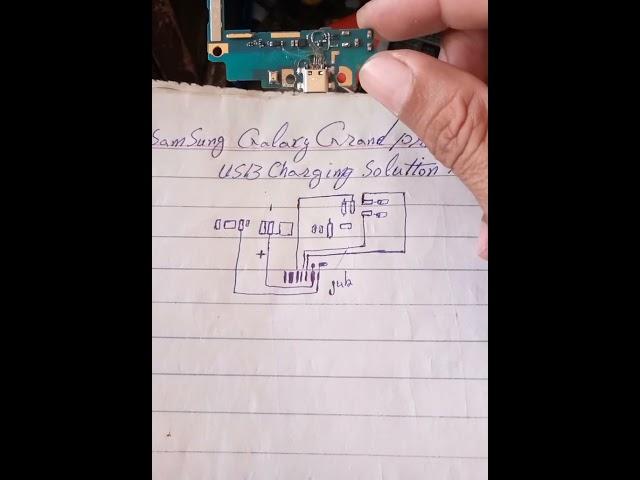 SamSung Galaxy Grand
USB Charging Solution
+
jub